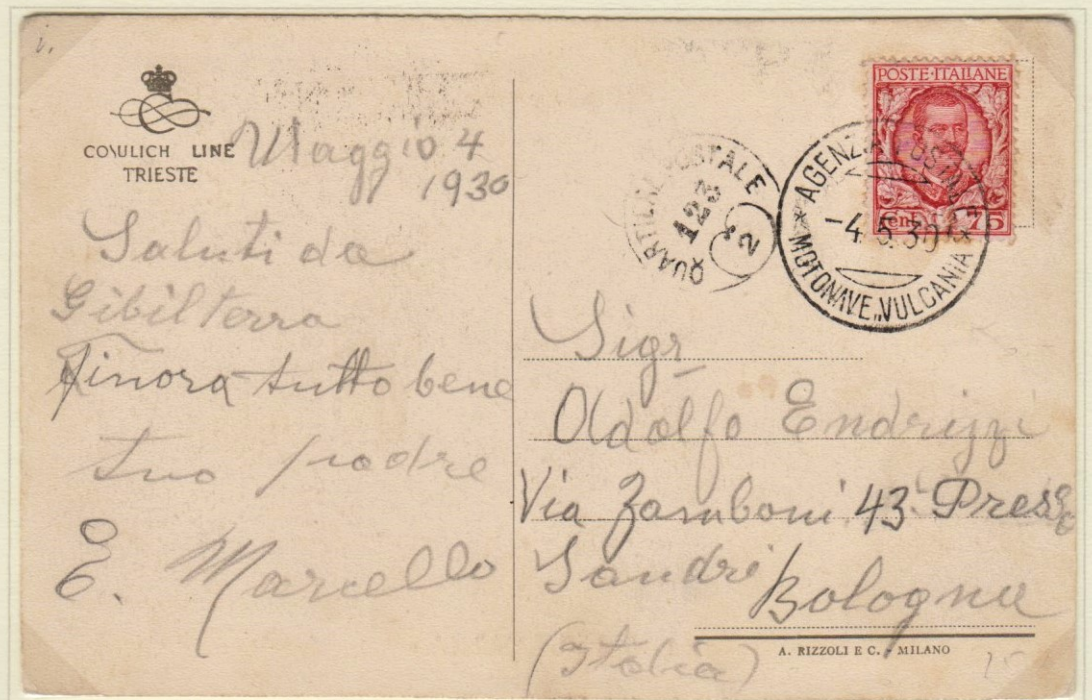 COSULICH LINE
TRIESTE
Maggio 4
1930
Saluti da
Gibilterra
Finora tutto bene
tuo padre
E. Marcello
POSTE·ITALIANE
Cent. 75
AGENZIA POSTALE
-4.5.30
MOTONAVE „VULCANIA"
QUARTIERE POSTALE
123
2
Sigr
Adolfo Endrizzi
Via Zamboni 43 Presso
Sandri Bologna
(Italia)
A. RIZZOLI E C. - MILANO
15